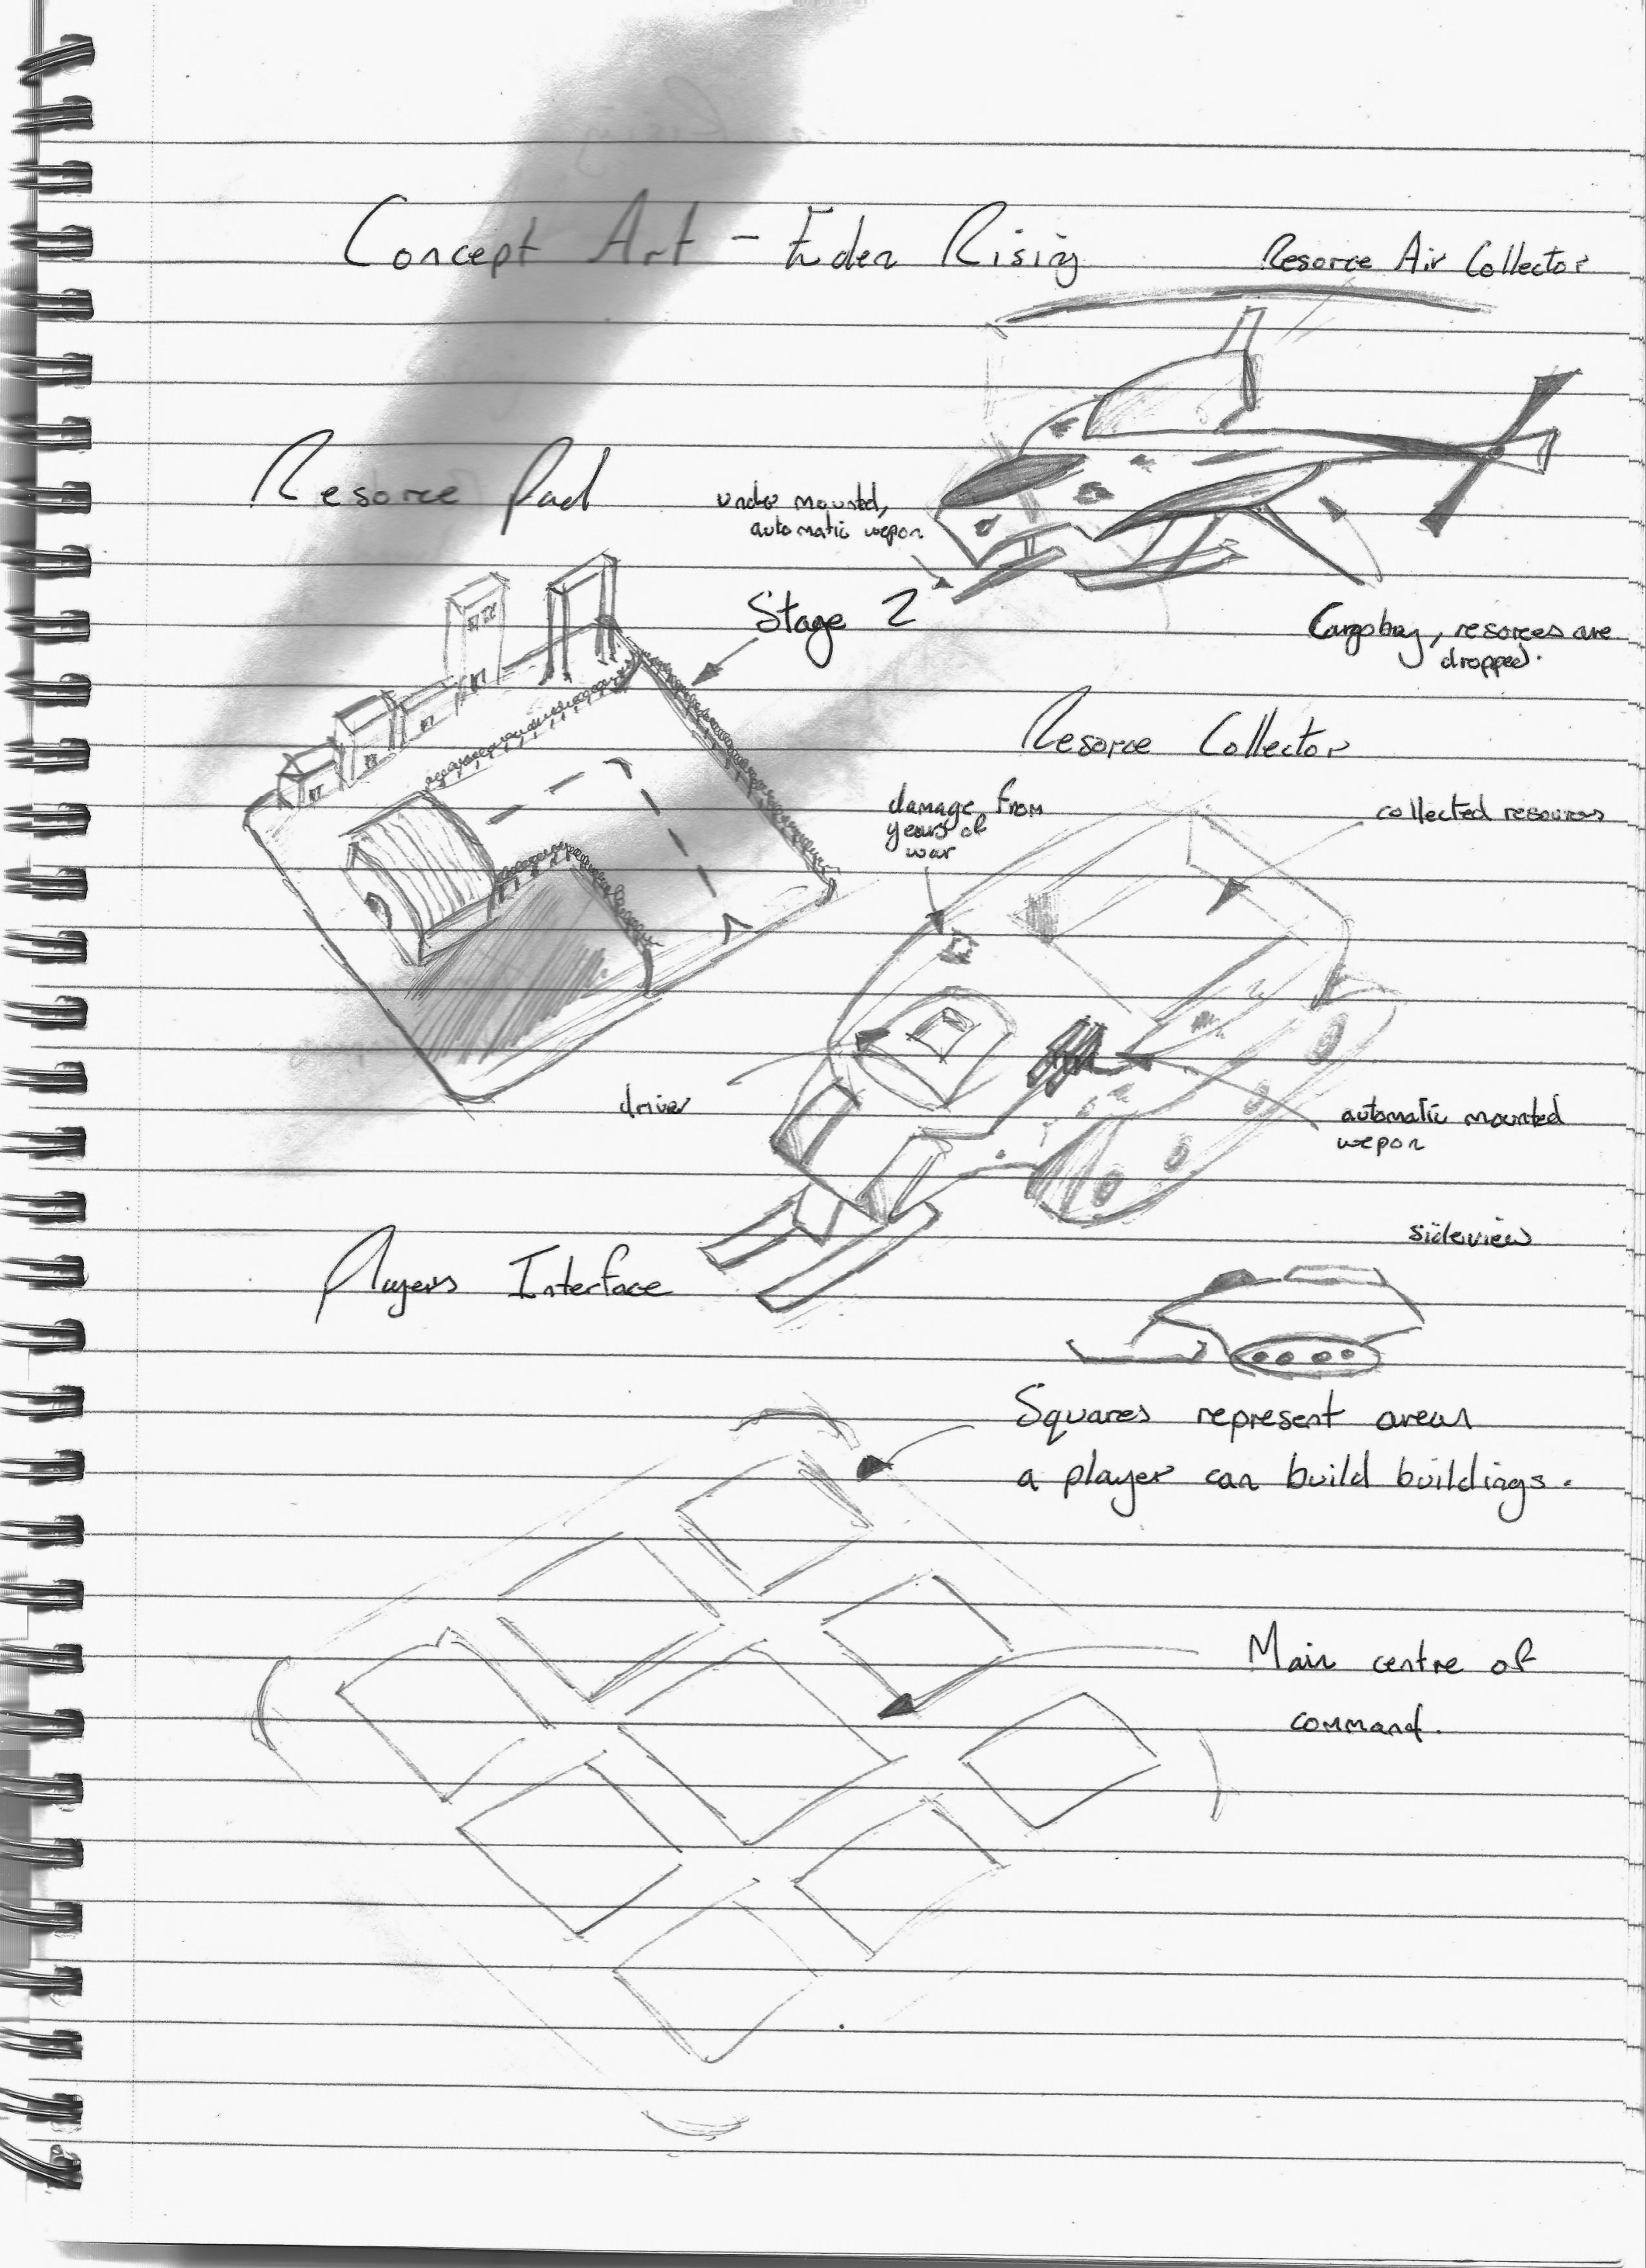 Concept Art - Eden Rising
Resorce Air Collector
Resorce Pad
under mounted,
automatic wepon
Stage 2
Cargobay, resorces are
dropped.
Resorce Collector
damage from
years of
war
collected resources
driver
automatic mounted
wepon
sideview
Players Interface
Squares represent areas
a player can build buildings.
Main centre of
command.